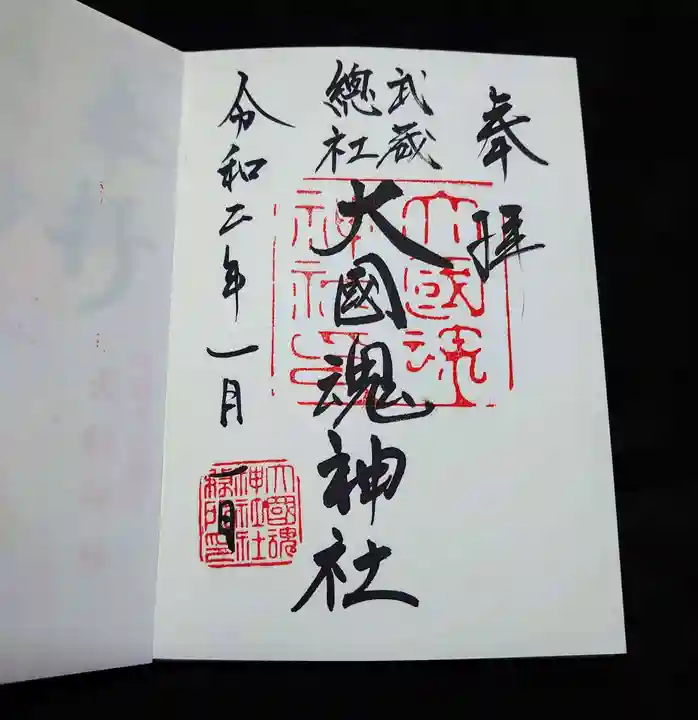 奉拝
武蔵
總社
大國魂神社
令和二年一月一日
大國魂
神社
大國魂
神社社
務所印